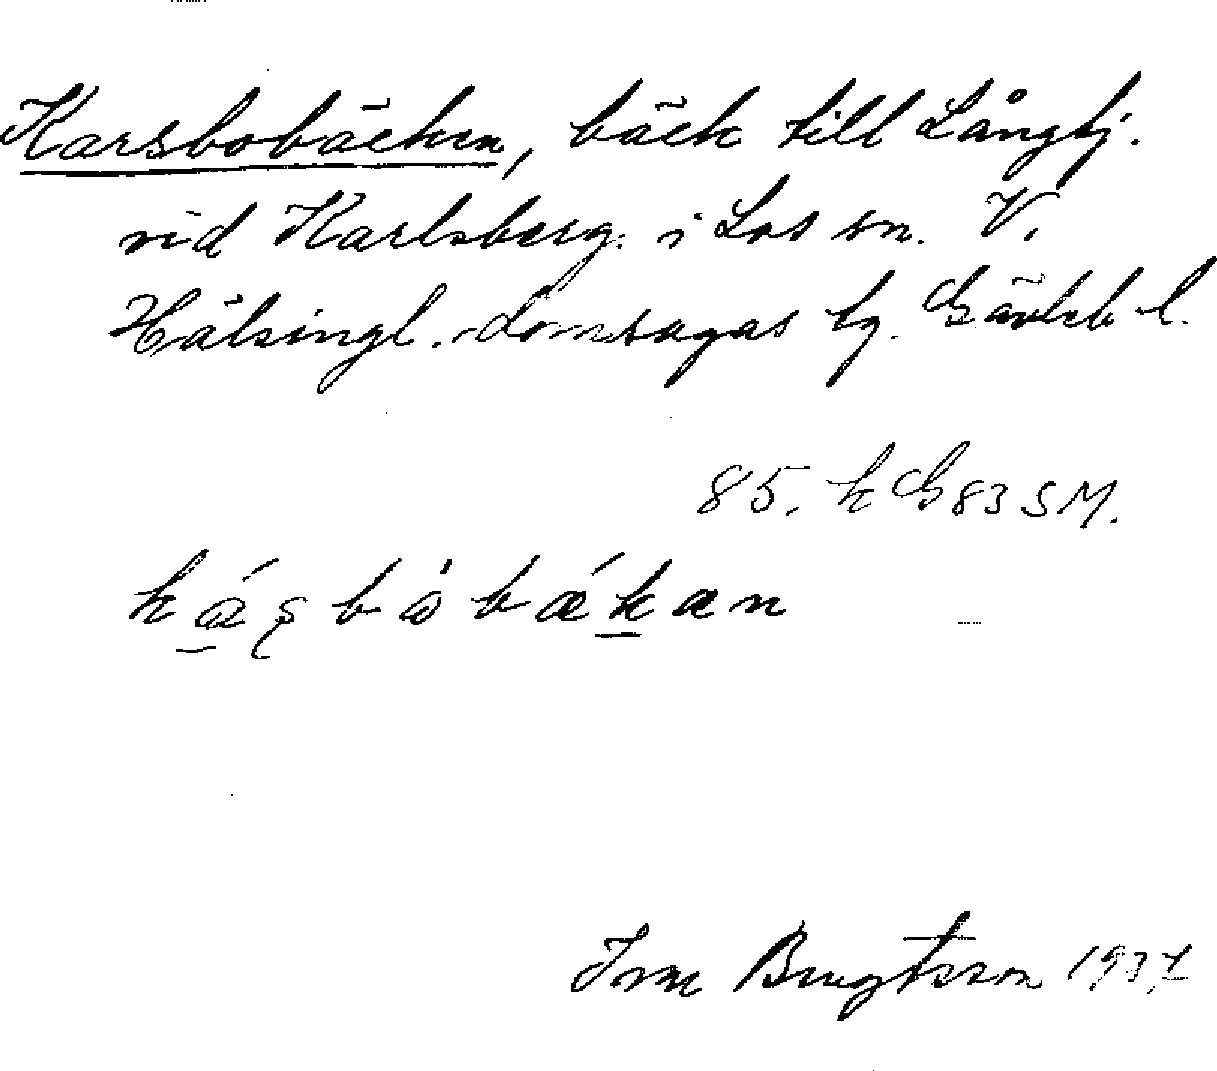 Karsbobäcken, bäck till Långtj.
vid Karlsberg. i Los sn. V.
Hälsingl. domsagas tg. Gävleb l.
85. k G 83 SM.
kásbòbǽkan
Bengtsson 1937